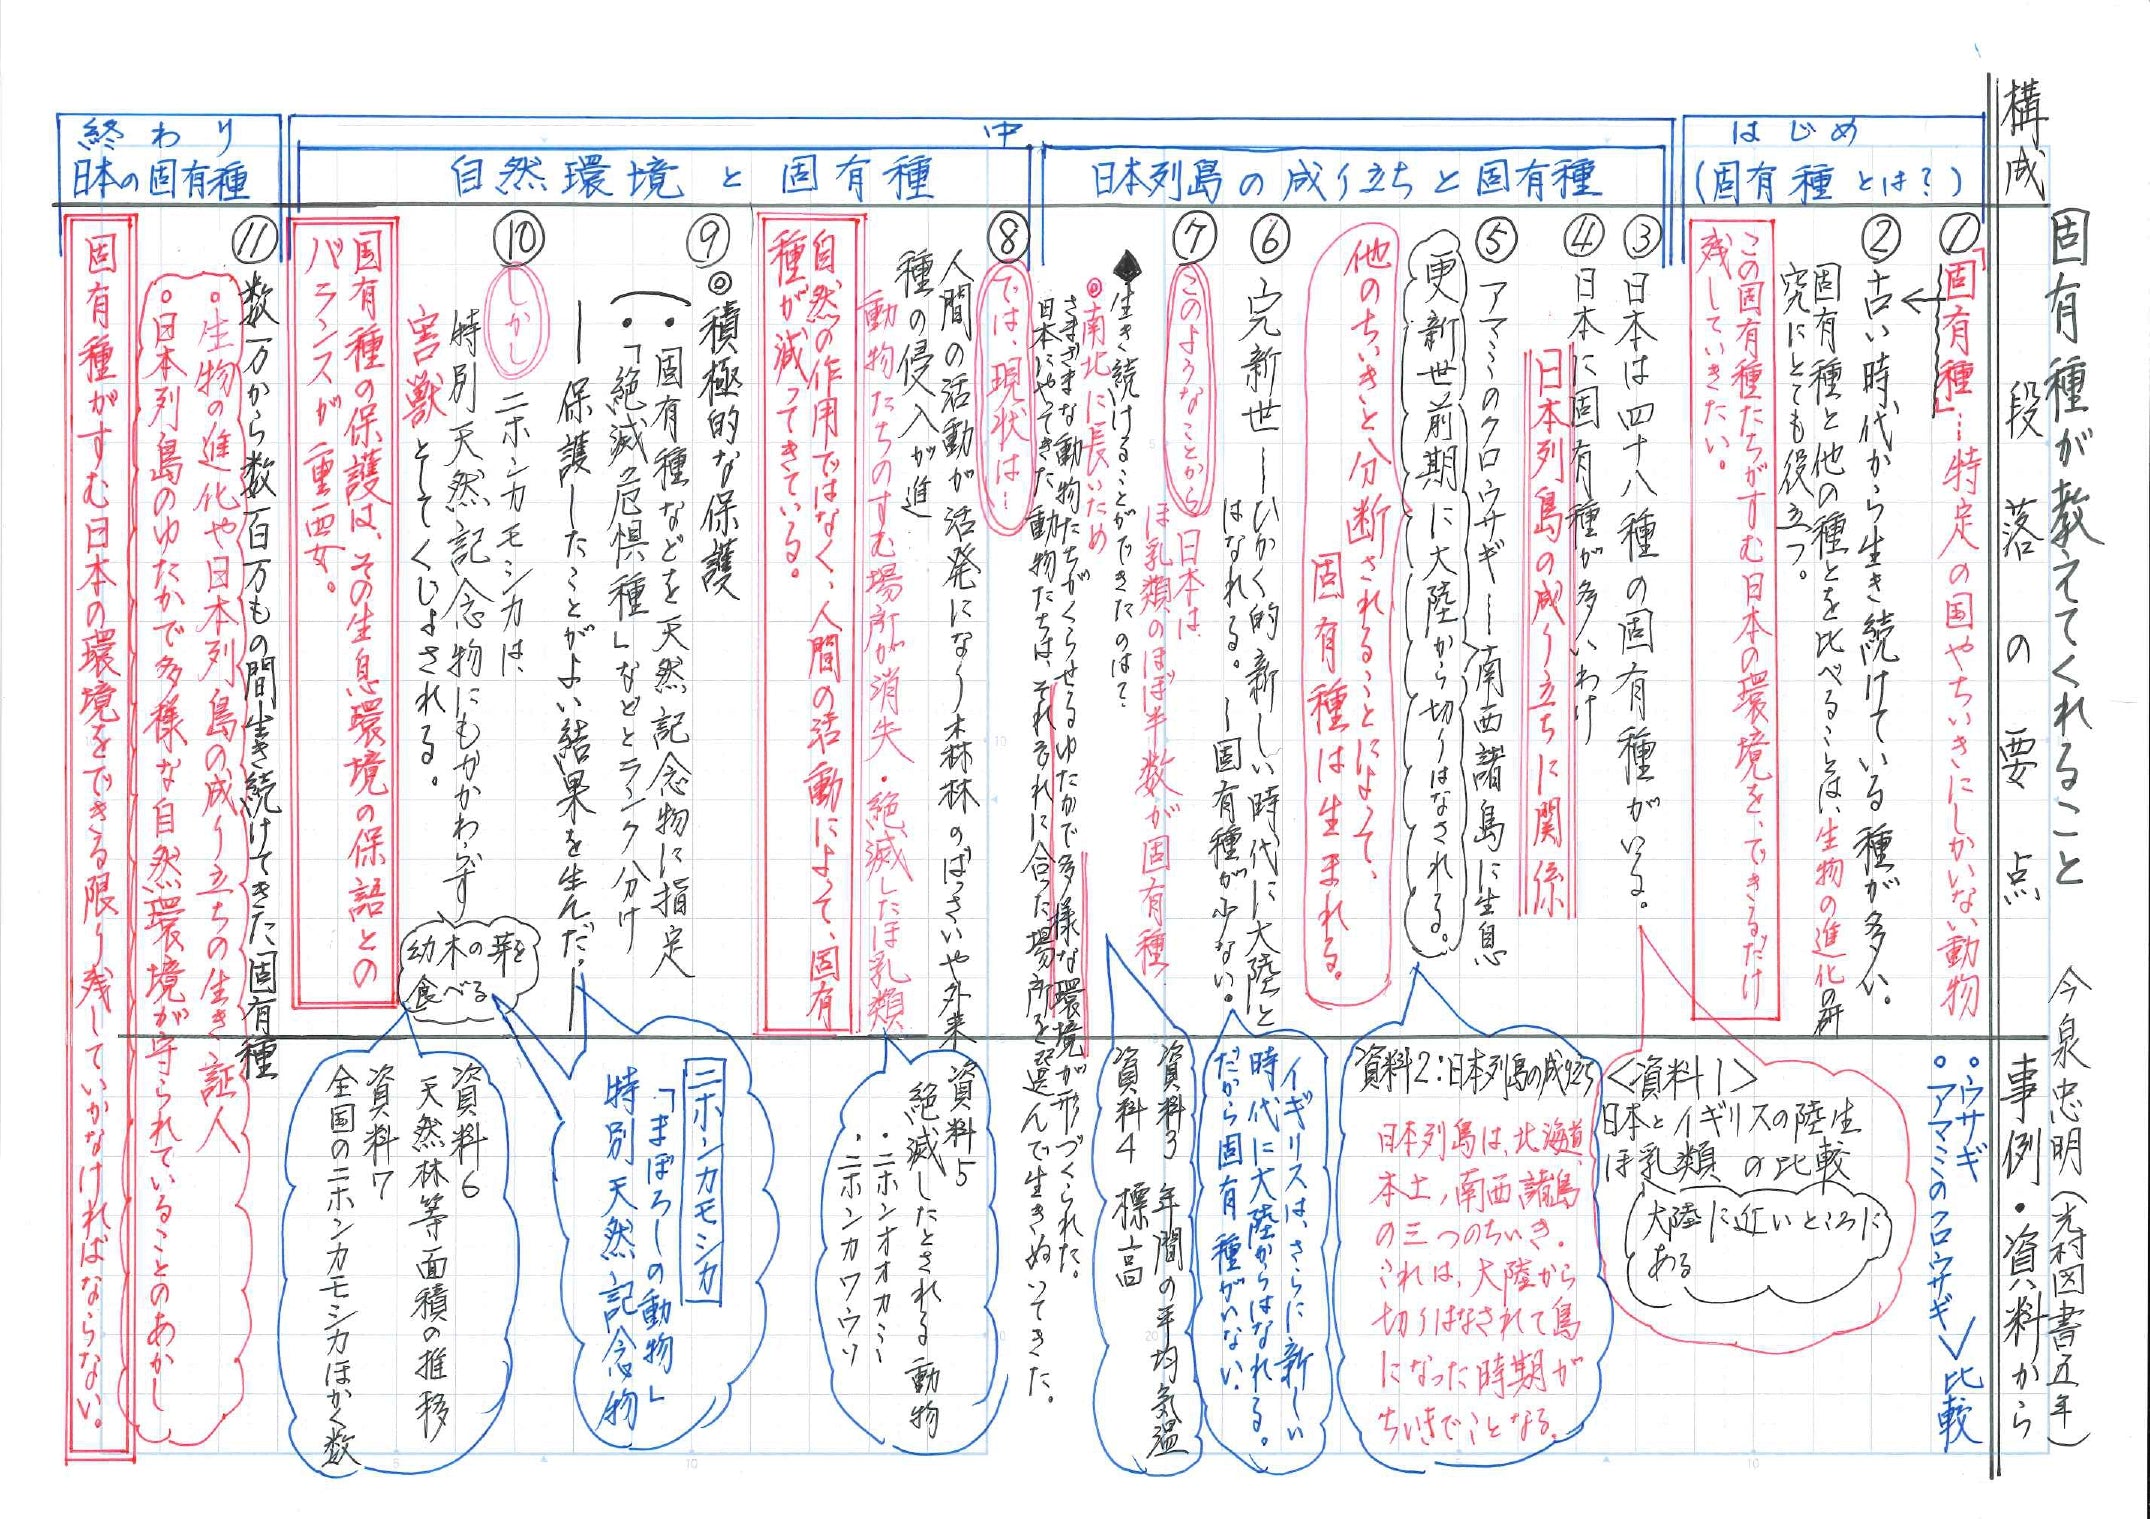 固有種が教えてくれること　今泉忠明（光村図書五年）
構成
段落の要点
事例・資料から
はじめ
（固有種とは？）
①「固有種」…特定の国やちいきにしかいない動物
②古い時代から生き続けている種が多い。
固有種と他の種とを比べることは、生物の進化の研
究にとても役立つ。
この固有種たちがすむ日本の環境を、できるだけ
残していきたい。
・ウサギ
・アマミのクロウサギ
比較
中
日本列島の成り立ちと固有種
③日本は四十八種の固有種がいる。
④日本に固有種が多いわけ
日本列島の成り立ちに関係
⑤アマミのクロウサギ―南西諸島に生息
更新世前期に大陸から切りはなされる。
他のちいきと分断されることによって、
固有種は生まれる。
⑥完新世―ひかく的新しい時代に大陸と
はなれる。―固有種が少ない。
⑦このようなことから日本は、
ほ乳類のほぼ半数が固有種
◆生き続けることができたのは？
◎南北に長いため
さまざまな動物たちがくらせるゆたかで多様な環境が形づくられた。
日本にやってきた動物たちは、それぞれに合った場所を選んで生きぬいてきた。
＜資料１＞
日本とイギリスの陸生
ほ乳類の比較
大陸に近いところに
ある
資料２：日本列島の成り立ち
日本列島は、北海道、
本土、南西諸島
の三つのちいき。
これは、大陸から
切りはなされて島
になった時期が
ちいきでことなる。
イギリスは、さらに新しい
時代に大陸からはなれる。
だから固有種がいない。
資料３　年間の平均気温
資料４　標高
自然環境と固有種
⑧では、現状は…
人間の活動が活発になり森林のばっさいや外来
種の侵入が進
動物たちのすむ場所が消失・絶滅したほ乳類
自然の作用ではなく、人間の活動によって、固有
種が減ってきている。
⑨◎積極的な保護
・固有種などを天然記念物に指定
・「絶滅危惧種」などとランク分け
―保護したことがよい結果を生んだ。―
⑩しかし
ニホンカモシカは、
特別天然記念物にもかかわらず
害獣としてくじょされる。
幼木の芽を
食べる
固有種の保護は、その生息環境の保語との
バランスが重要。
資料５
絶滅したとされる動物
・ニホンオオカミ
・ニホンカワウソ
ニホンカモシカ
「まぼろしの動物」
特別天然記念物
資料６
天然林等面積の推移
資料７
全国のニホンカモシカほかく数
終わり
日本の固有種
⑪数万から数百万もの間生き続けてきた固有種
・生物の進化や日本列島の成り立ちの生き証人
・日本列島のゆたかで多様な自然環境が守られていることのあかし
固有種がすむ日本の環境をできる限り残していかなければならない。